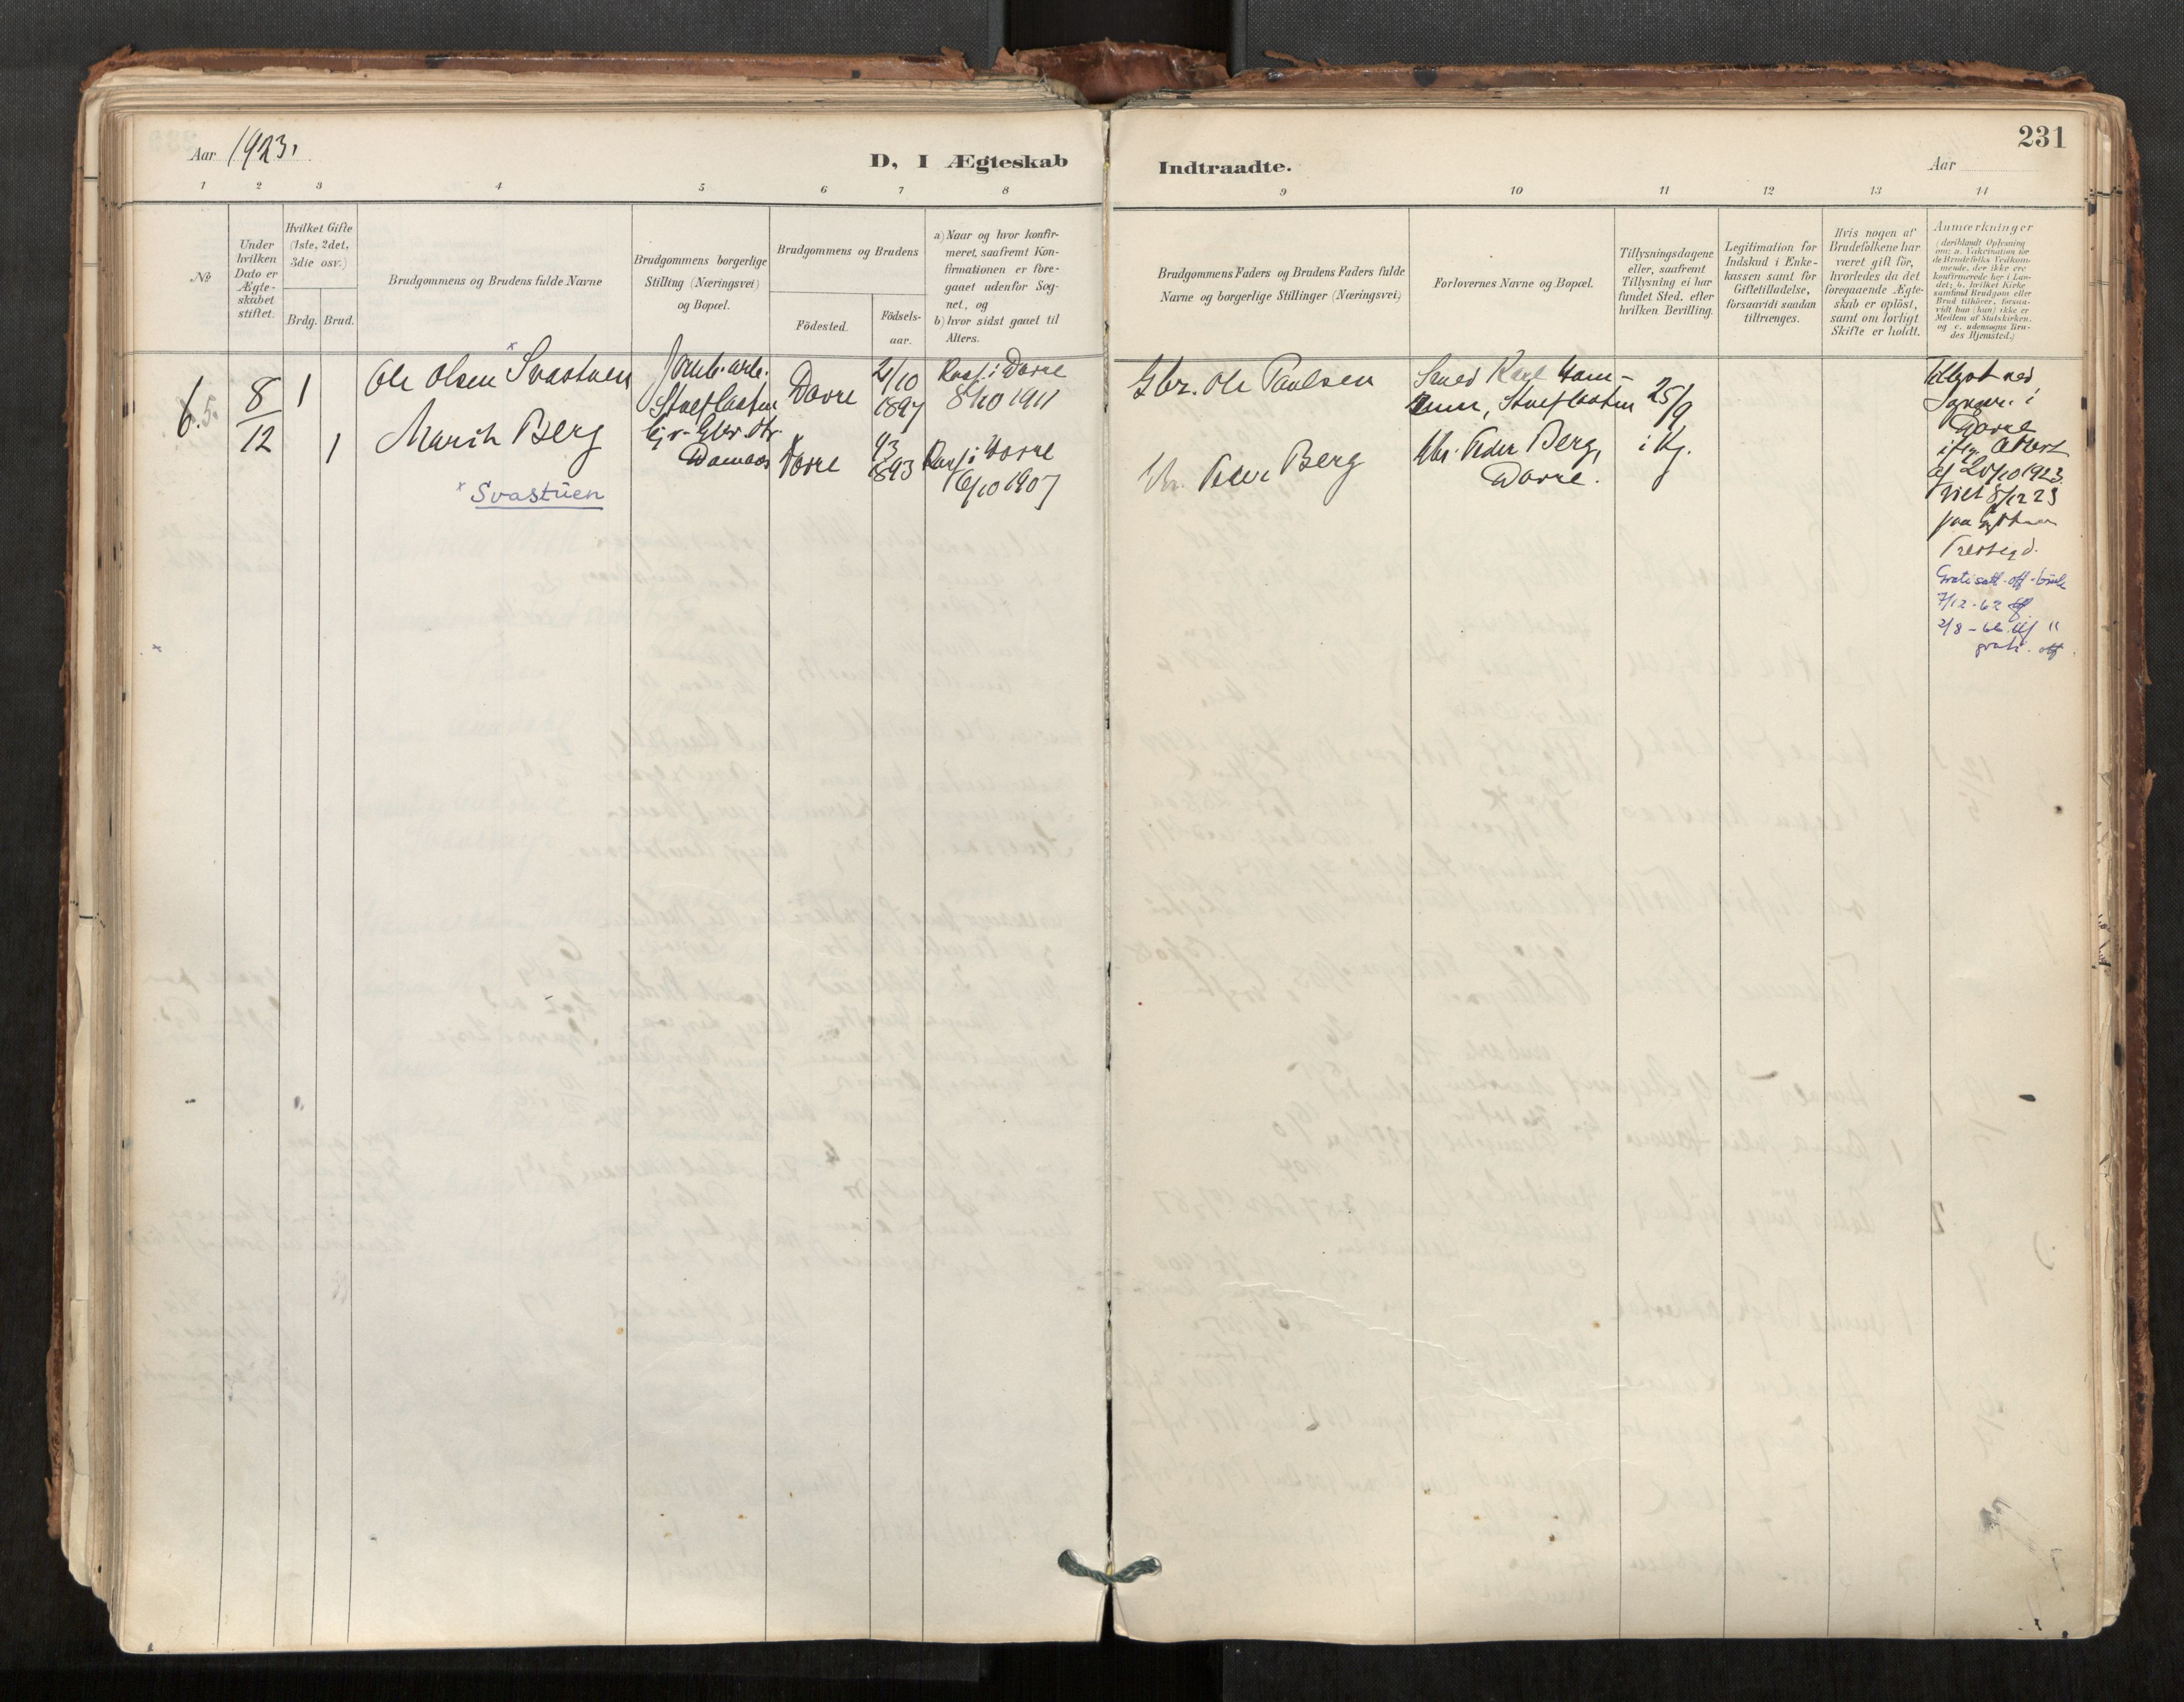 Aar 1923.
D, I Ægteskab
Indtraadte.
Aar
231
1 2 3 4 5 6 7 8 9 10 11 12 13 14
No
Under
hvilken
Dato er
Ægte-
skabet
stiftet.
Hvilket Gifte
(1ste, 2det,
3die osv.)
Brdg. Brud.
Brudgommens og Brudens fulde Navne
Brudgommens borgerlige
Stilling (Næringsvei)
og Bopæl.
Brudgommens og Brudens
Födested.
Födsels-
aar.
a) Naar og hvor konfir-
meret, saafremt Kon-
firmationen er fore-
gaaet udenfor Sog-
net, og
b) hvor sidst gaaet til
Alters.
Brudgommens Faders og Brudens Faders fulde
Navne og borgerlige Stillinger (Næringsvei)
Forlovernes Navne og Bopæl.
Tillysningsdagene
eller, saafremt
Tillysning ei har
fundet Sted, efter
hvilken Bevilling.
Legitimation for
Indskud i Enke-
kassen samt for
Giftetilladelse,
forsaavidt saadan
tiltrænges.
Hvis nogen af
Brudefolkene har
været gift för,
hvorledes da det
foregaaende Ægte-
skab er oplöst,
samt om lovligt
Skifte er holdt.
Anmærkninger
(deriblandt Oplysning
om: a. Vakcination for
de Brudefolks Vedkom-
mende, der ikke ere
konfirmerede her i Lan-
det; b. hvilket Kirke-
samfund Brudgom eller
Brud tilhörer, forsaa-
vidt han (hun) ikke er
Medlem af Statskirken,
og c. udensogns Bru-
des Hjemsted.)
6.
8/12
1
Ole Olsen Svastuen
Dovre
2/10
1897
Konf. i Dovre
8/10 1911
Gbr. Ole Paulsen
25/9
i Kj.
1
Marith Berg
x Svastuen
Dovre
1893
Konf i Dovre
6/10 1907
Peder Berg
Peder Berg,
Dovre.
i
Dovre
iflg. Attest
af 20/10 1923.
Viet 8/12 23
paa
Prestegd.
7/12-62
2/8-66 "